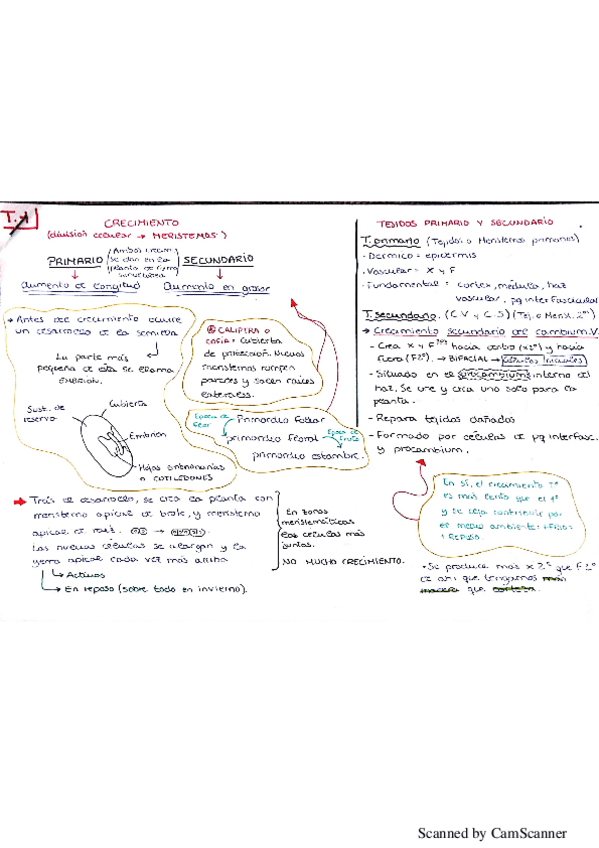 T.1
CRECIMIENTO
(división celular → MERISTEMOS)
PRIMARIO
(Ambos crecim.
se dan en la
planta de forma
simultánea)
SECUNDARIO
aumento de longitud
Aumento en grosor
→ Antes del crecimiento ocurre
un desarrollo de la semilla
La parte más
pequeña de esta se llama
EMBRIÓN.
Sust. de
reserva
Cubierta
Embrión
Hojas embrionarias
o COTILEDONES
CALIPTRA o
cofia: Cubierta
de protección. Nuevos
meristemos rompen
paredes y salen raíces
laterales.
Época de
flor
Primordio foliar
primordio floral
Época de
fruto
primordio estambre.
→ Tras el desarrollo, se crea la planta con
meristemo apical de brote, y meristemo
apical de raíz.
Las nuevas células se alargan y la
yema apical cada vez más arriba
→ Activos
→ En reposo (sobre todo en invierno).
En zonas
meristemáticas
las células más
juntas.
NO MUCHO CRECIMIENTO.
TEJIDOS PRIMARIO Y SECUNDARIO
T. primario (Tejidos o Meristemos primarios)
- Dérmico = epidermis
- Vascular = X y F
- Fundamental = cortex, médula, haz
vascular, pq interfascicular
T. secundario. (C V y C S) (Tej. o Meris. 2º)
→ Crecimiento secundario del cambium. V.
- Crea X y F hacia dentro (X2º) y hacia
fuera (F2º). → BIFACIAL → células iniciales
- Situado en el procambium interno al
haz. Se une y crea uno solo para la
planta.
- Repara tejidos dañados
- Formado por células de pq interfasc.
y procambium.
En sí, el crecimiento 2º
es más lento que el 1º
y se deja contribuir por
el medio ambiente:
• Se produce más X 2º que F 2º
de ahí que tengamos más
que
Scanned by CamScanner